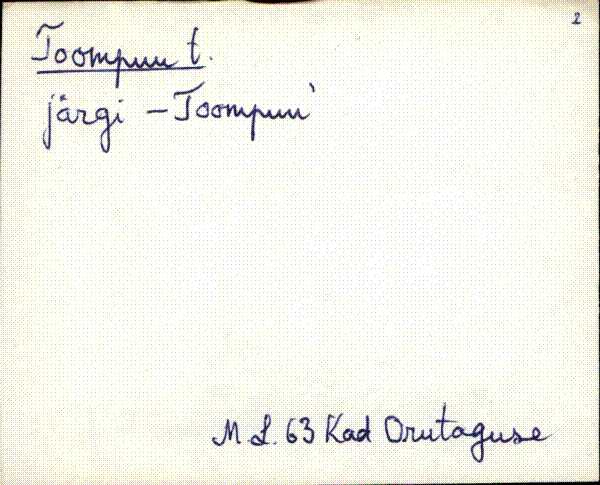 2
Toompuu t.
järgi – Toompuu`
M. L. 63 Kad Orutaguse